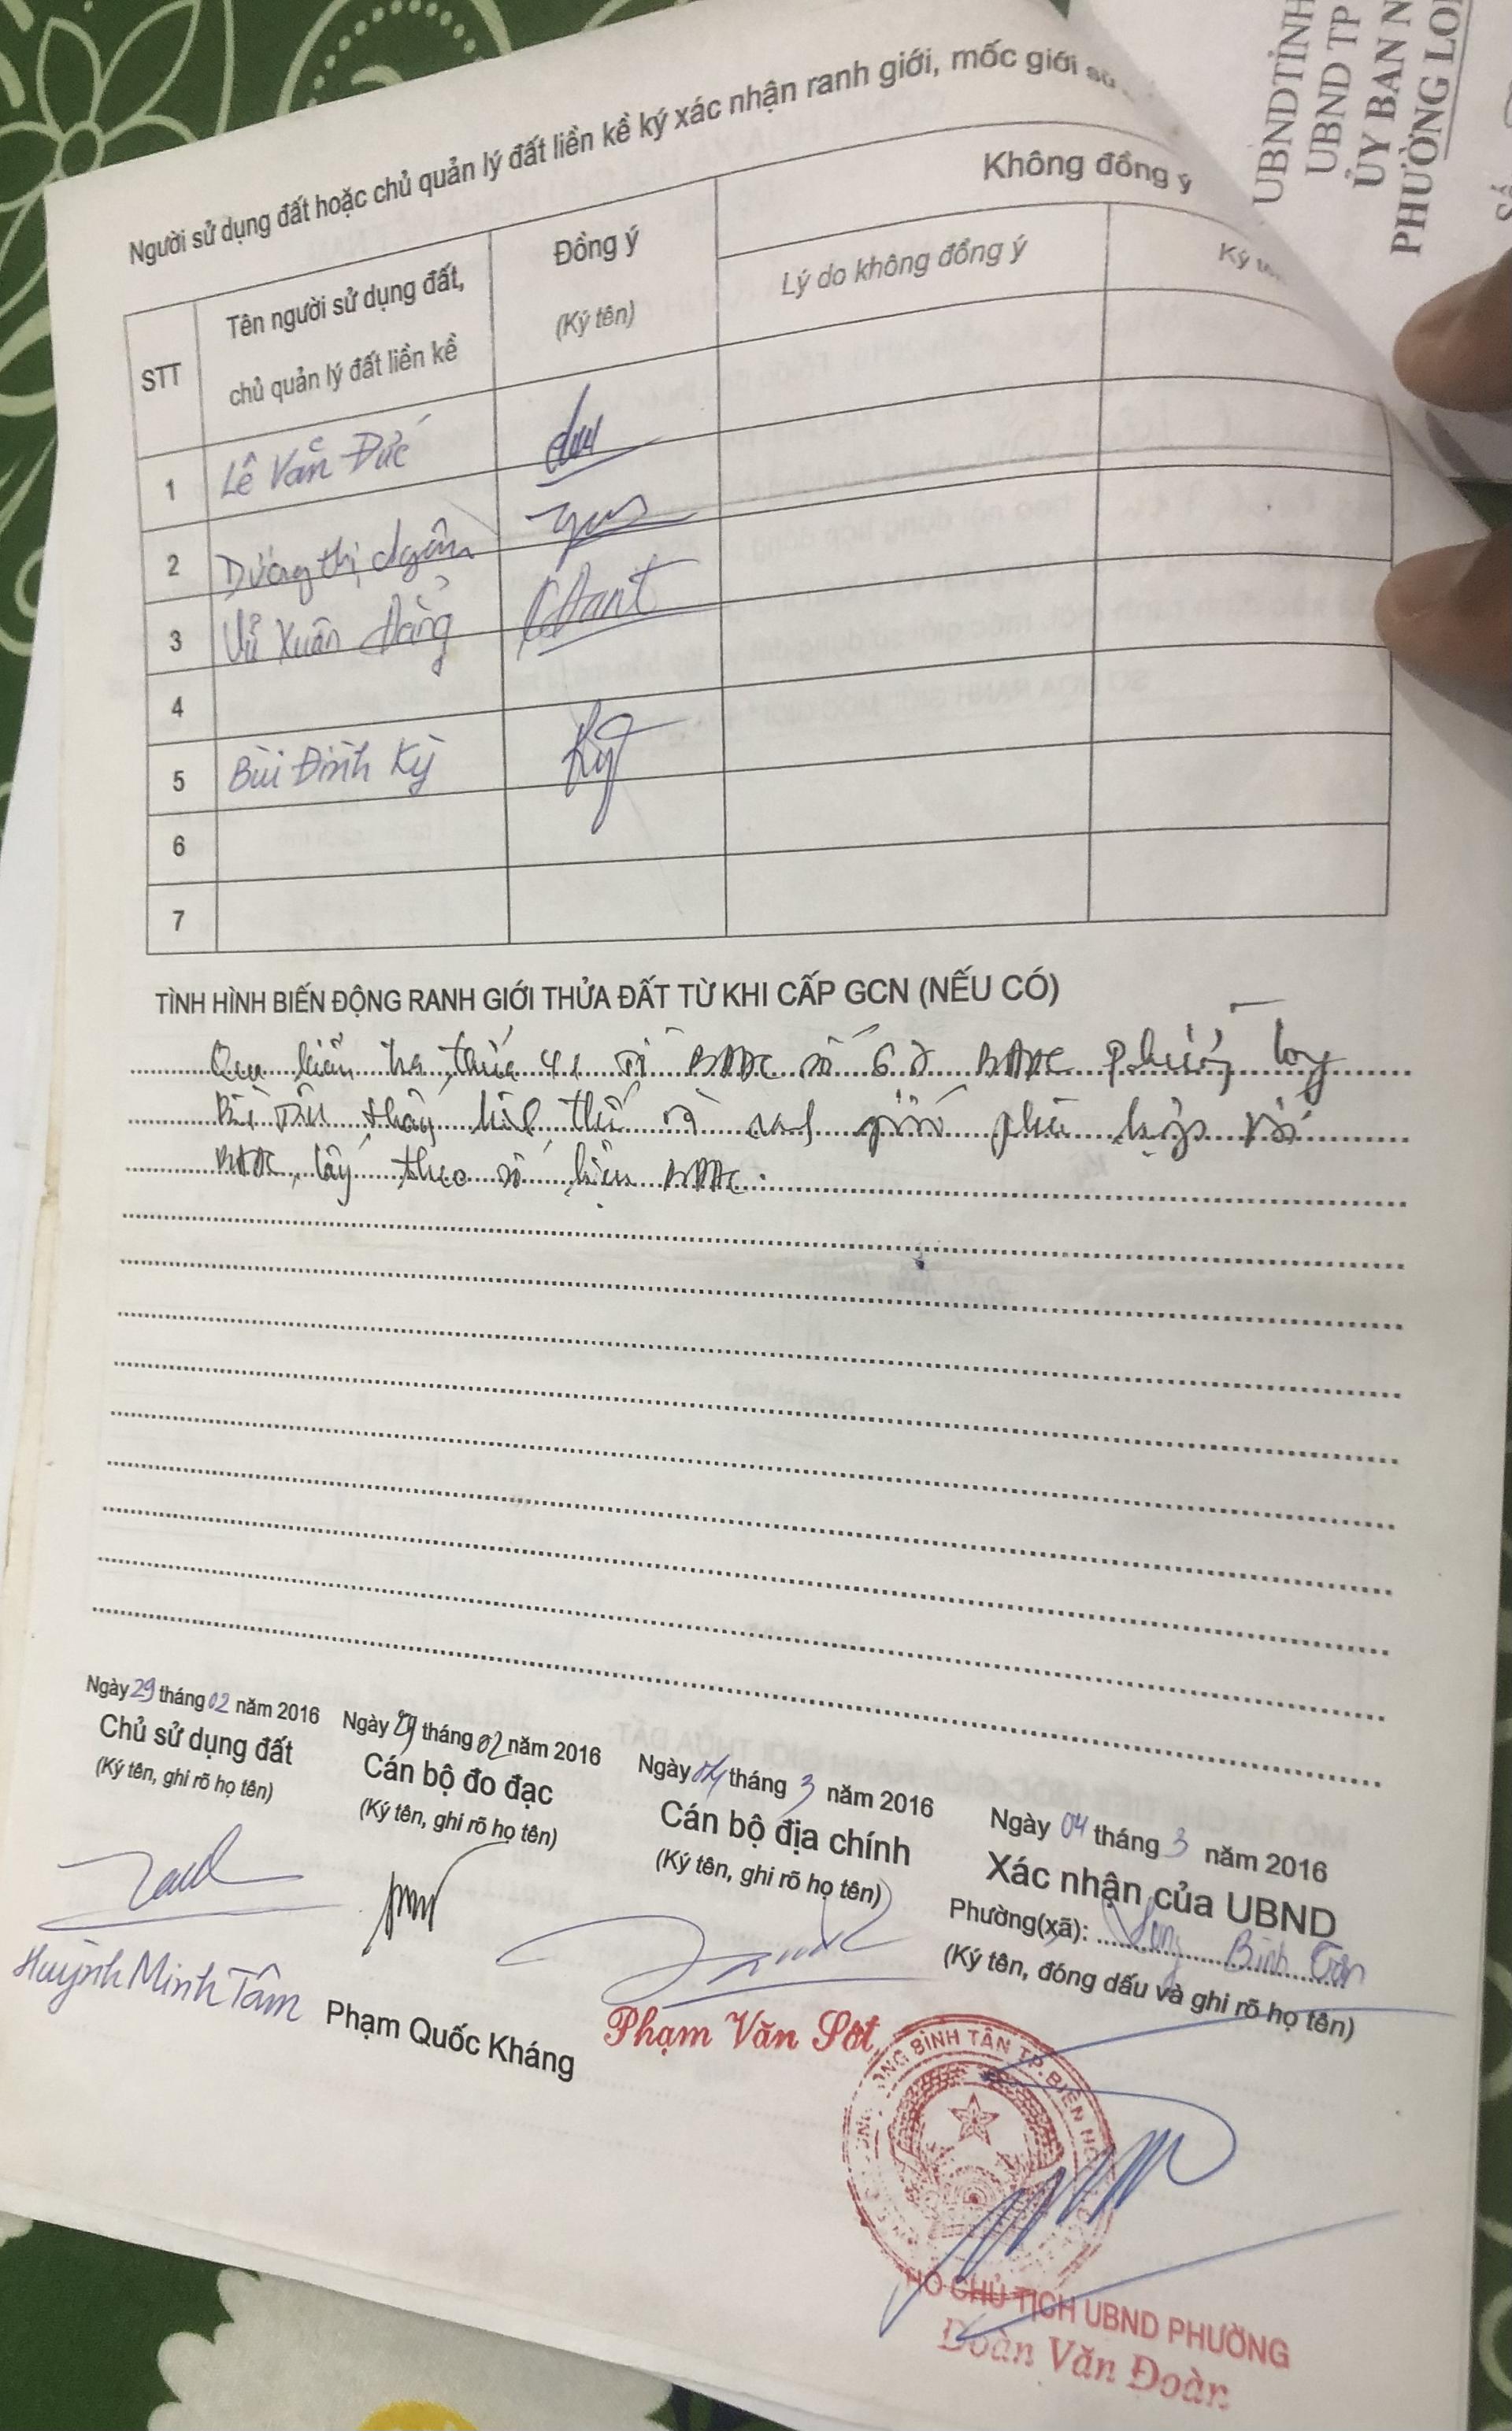 UBNDTỈNH
UBND TP
ỦY BAN N
PHƯỜNG LO
Số
Người sử dụng đất hoặc chủ quản lý đất liền kề ký xác nhận ranh giới, mốc giới sử
STT
Tên người sử dụng đất,
chủ quản lý đất liền kề
Đồng ý
(Ký tên)
Không đồng ý
Lý do không đồng ý
Ký
1 Lê Văn Đức
2 Dương thị Ngân
3 Vũ Xuân
4
5 Bùi Đình Kỳ Kỳ
6
7
TÌNH HÌNH BIẾN ĐỘNG RANH GIỚI THỬA ĐẤT TỪ KHI CẤP GCN (NẾU CÓ)
Qua kiểm tra thửa 41 tờ BĐĐC số 62 BĐĐC phường Long
Bình Tân thấy hình thể và ranh giới phù hợp với
BĐĐC, lấy theo số liệu BĐĐC.
Ngày 29 tháng 02 năm 2016
Chủ sử dụng đất
(Ký tên, ghi rõ họ tên)
Huỳnh Minh Tâm
Ngày 29 tháng 02 năm 2016
Cán bộ đo đạc
(Ký tên, ghi rõ họ tên)
Phạm Quốc Kháng
Ngày 04 tháng 3 năm 2016
Cán bộ địa chính
(Ký tên, ghi rõ họ tên)
Phạm Văn Sơt
Ngày 04 tháng 3 năm 2016
Xác nhận của UBND
Phường(xã): Long Bình Tân
(Ký tên, đóng dấu và ghi rõ họ tên)
ONG BÌNH TÂN TP.BIÊN HÒA
HÓ CHỦ TỊCH UBND PHƯỜNG
Đoàn Văn Đoàn